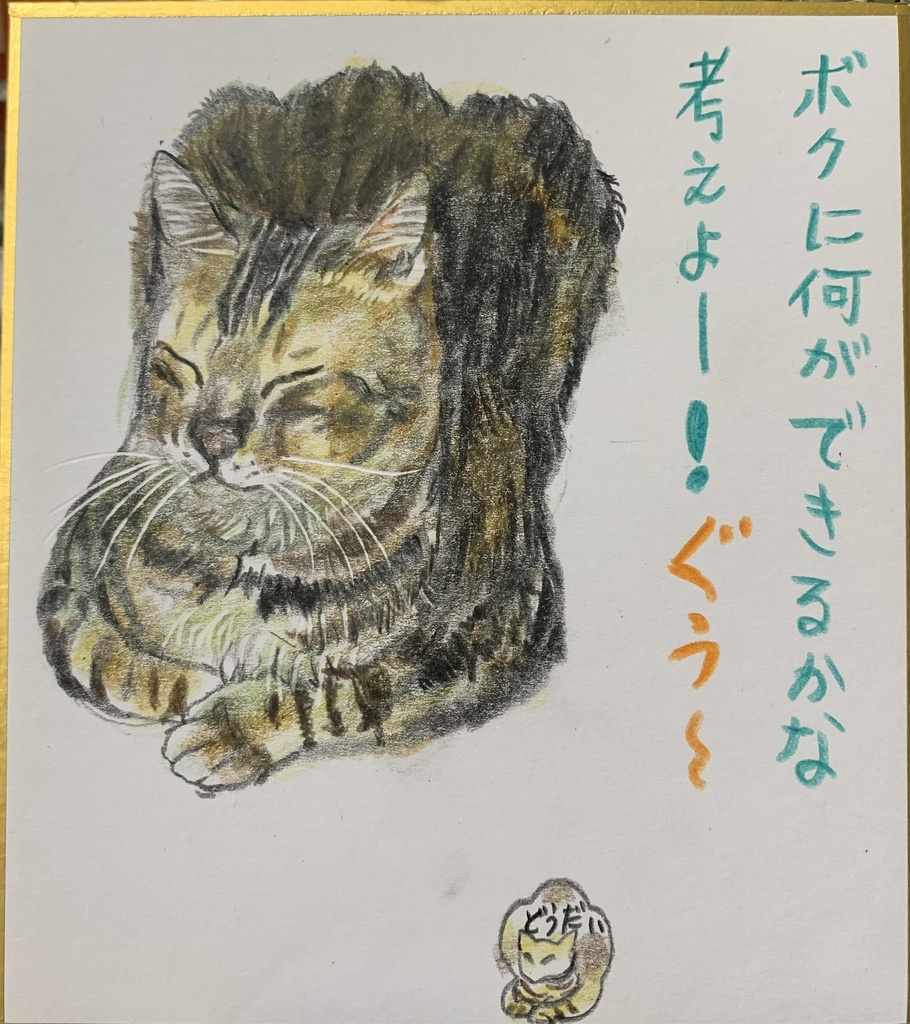 ボクに何ができるかな
考えよー！ぐぅ〜
どうだい